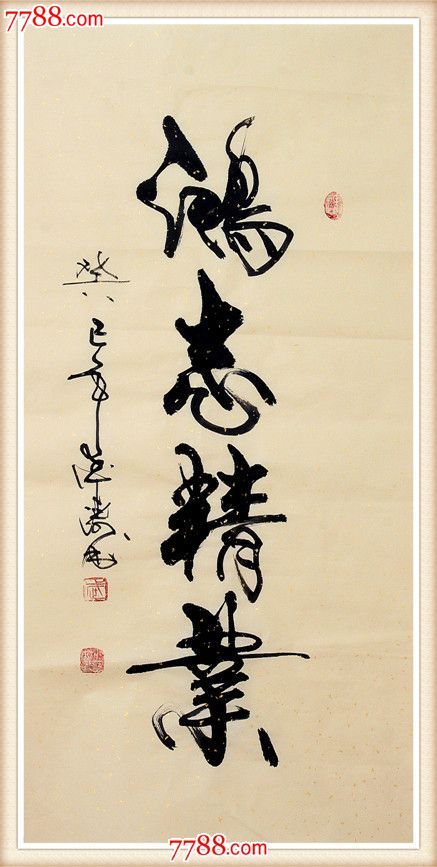 7788.com
鴻志精業
癸巳年
7788.com